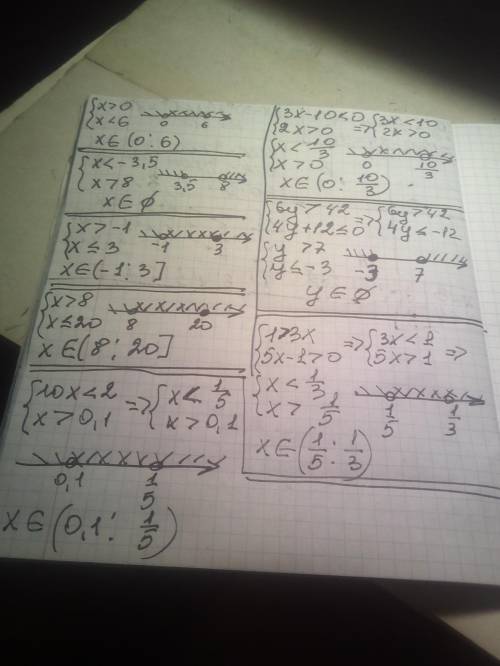 {x>0
{x<6
0 6
x∈(0:6)
{x<-3,5
{x>8
3,5 8
x∈∅
{x>-1
{x≤3
-1 3
x∈(-1:3]
{x>8
{x≤20
8 20
x∈(8:20]
{10x<2 => {x<1/5
{x>0,1 {x>0,1
0,1 1/5
x∈(0,1: 1/5)
{3x-10<0 => {3x<10
{2x>0 {2x>0
{x<10/3
{x>0
0 10/3
x∈(0: 10/3)
{6y>42 => {6y>42
{4y+12≤0 {4y≤-12
{y>7
{y≤-3
-3 7
y∈∅
{1>3x => {3x<1 =>
{5x-1>0 {5x>1
{x<1/3
{x>1/5
1/5 1/3
x∈(1/5: 1/3)